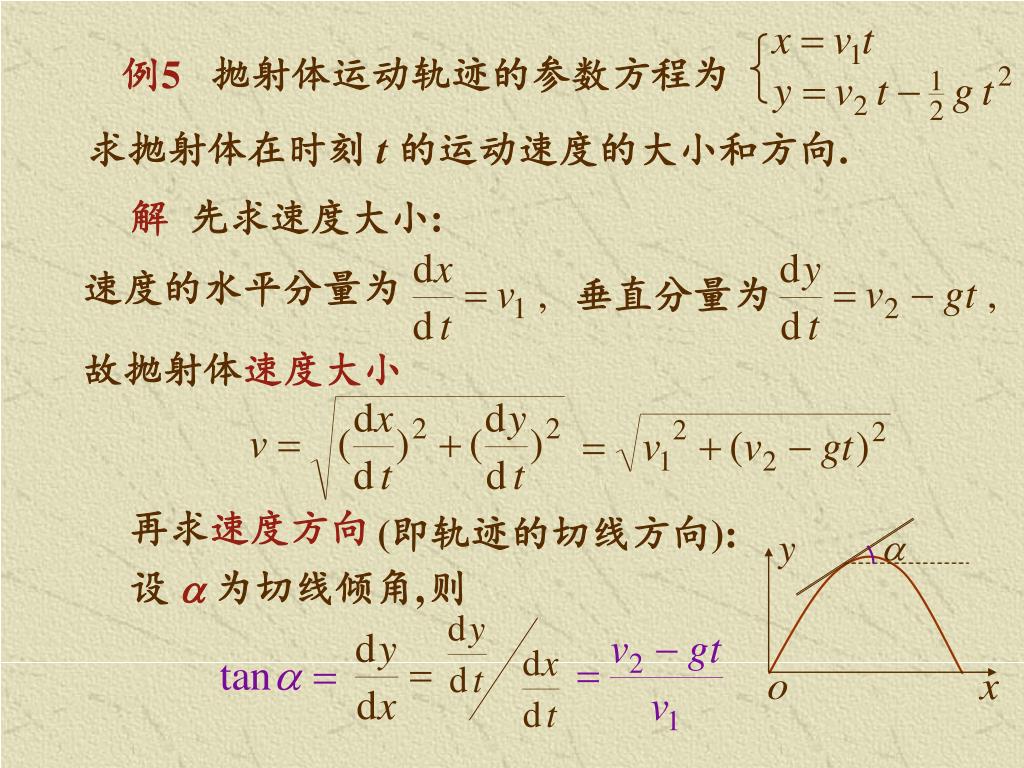 例5 抛射体运动轨迹的参数方程为 { x = v₁t
y = v₂ t − ½ g t²
求抛射体在时刻 t 的运动速度的大小和方向.
解 先求速度大小:
速度的水平分量为 dx/dt = v₁ , 垂直分量为 dy/dt = v₂ − gt ,
故抛射体速度大小
v = √((dx/dt)² + (dy/dt)²) = √(v₁² + (v₂ − gt)²)
再求速度方向 (即轨迹的切线方向):
设 α 为切线倾角,则
tan α = dy/dx = dy/dt / dx/dt = (v₂ − gt)/v₁
y α
o x